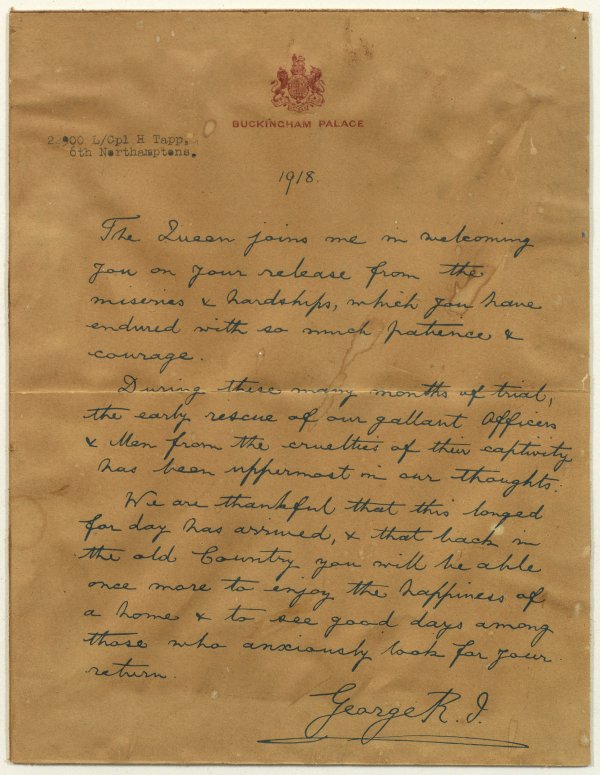 BUCKINGHAM PALACE
L/Cpl H Tapp,
6th Northamptons.
1918.
The Queen joins me in welcoming
you on your release from the
miseries & hardships, which you have
endured with so much patience &
courage.
During these many months of trial,
the early rescue of our gallant Officers
& Men from the cruelties of their captivity
has been uppermost in our thoughts.
We are thankful that this longed
for day has arrived, & that back in
the old Country you will be able
once more to enjoy the happiness of
a home & to see good days among
those who anxiously look for your
return.
George R.I.